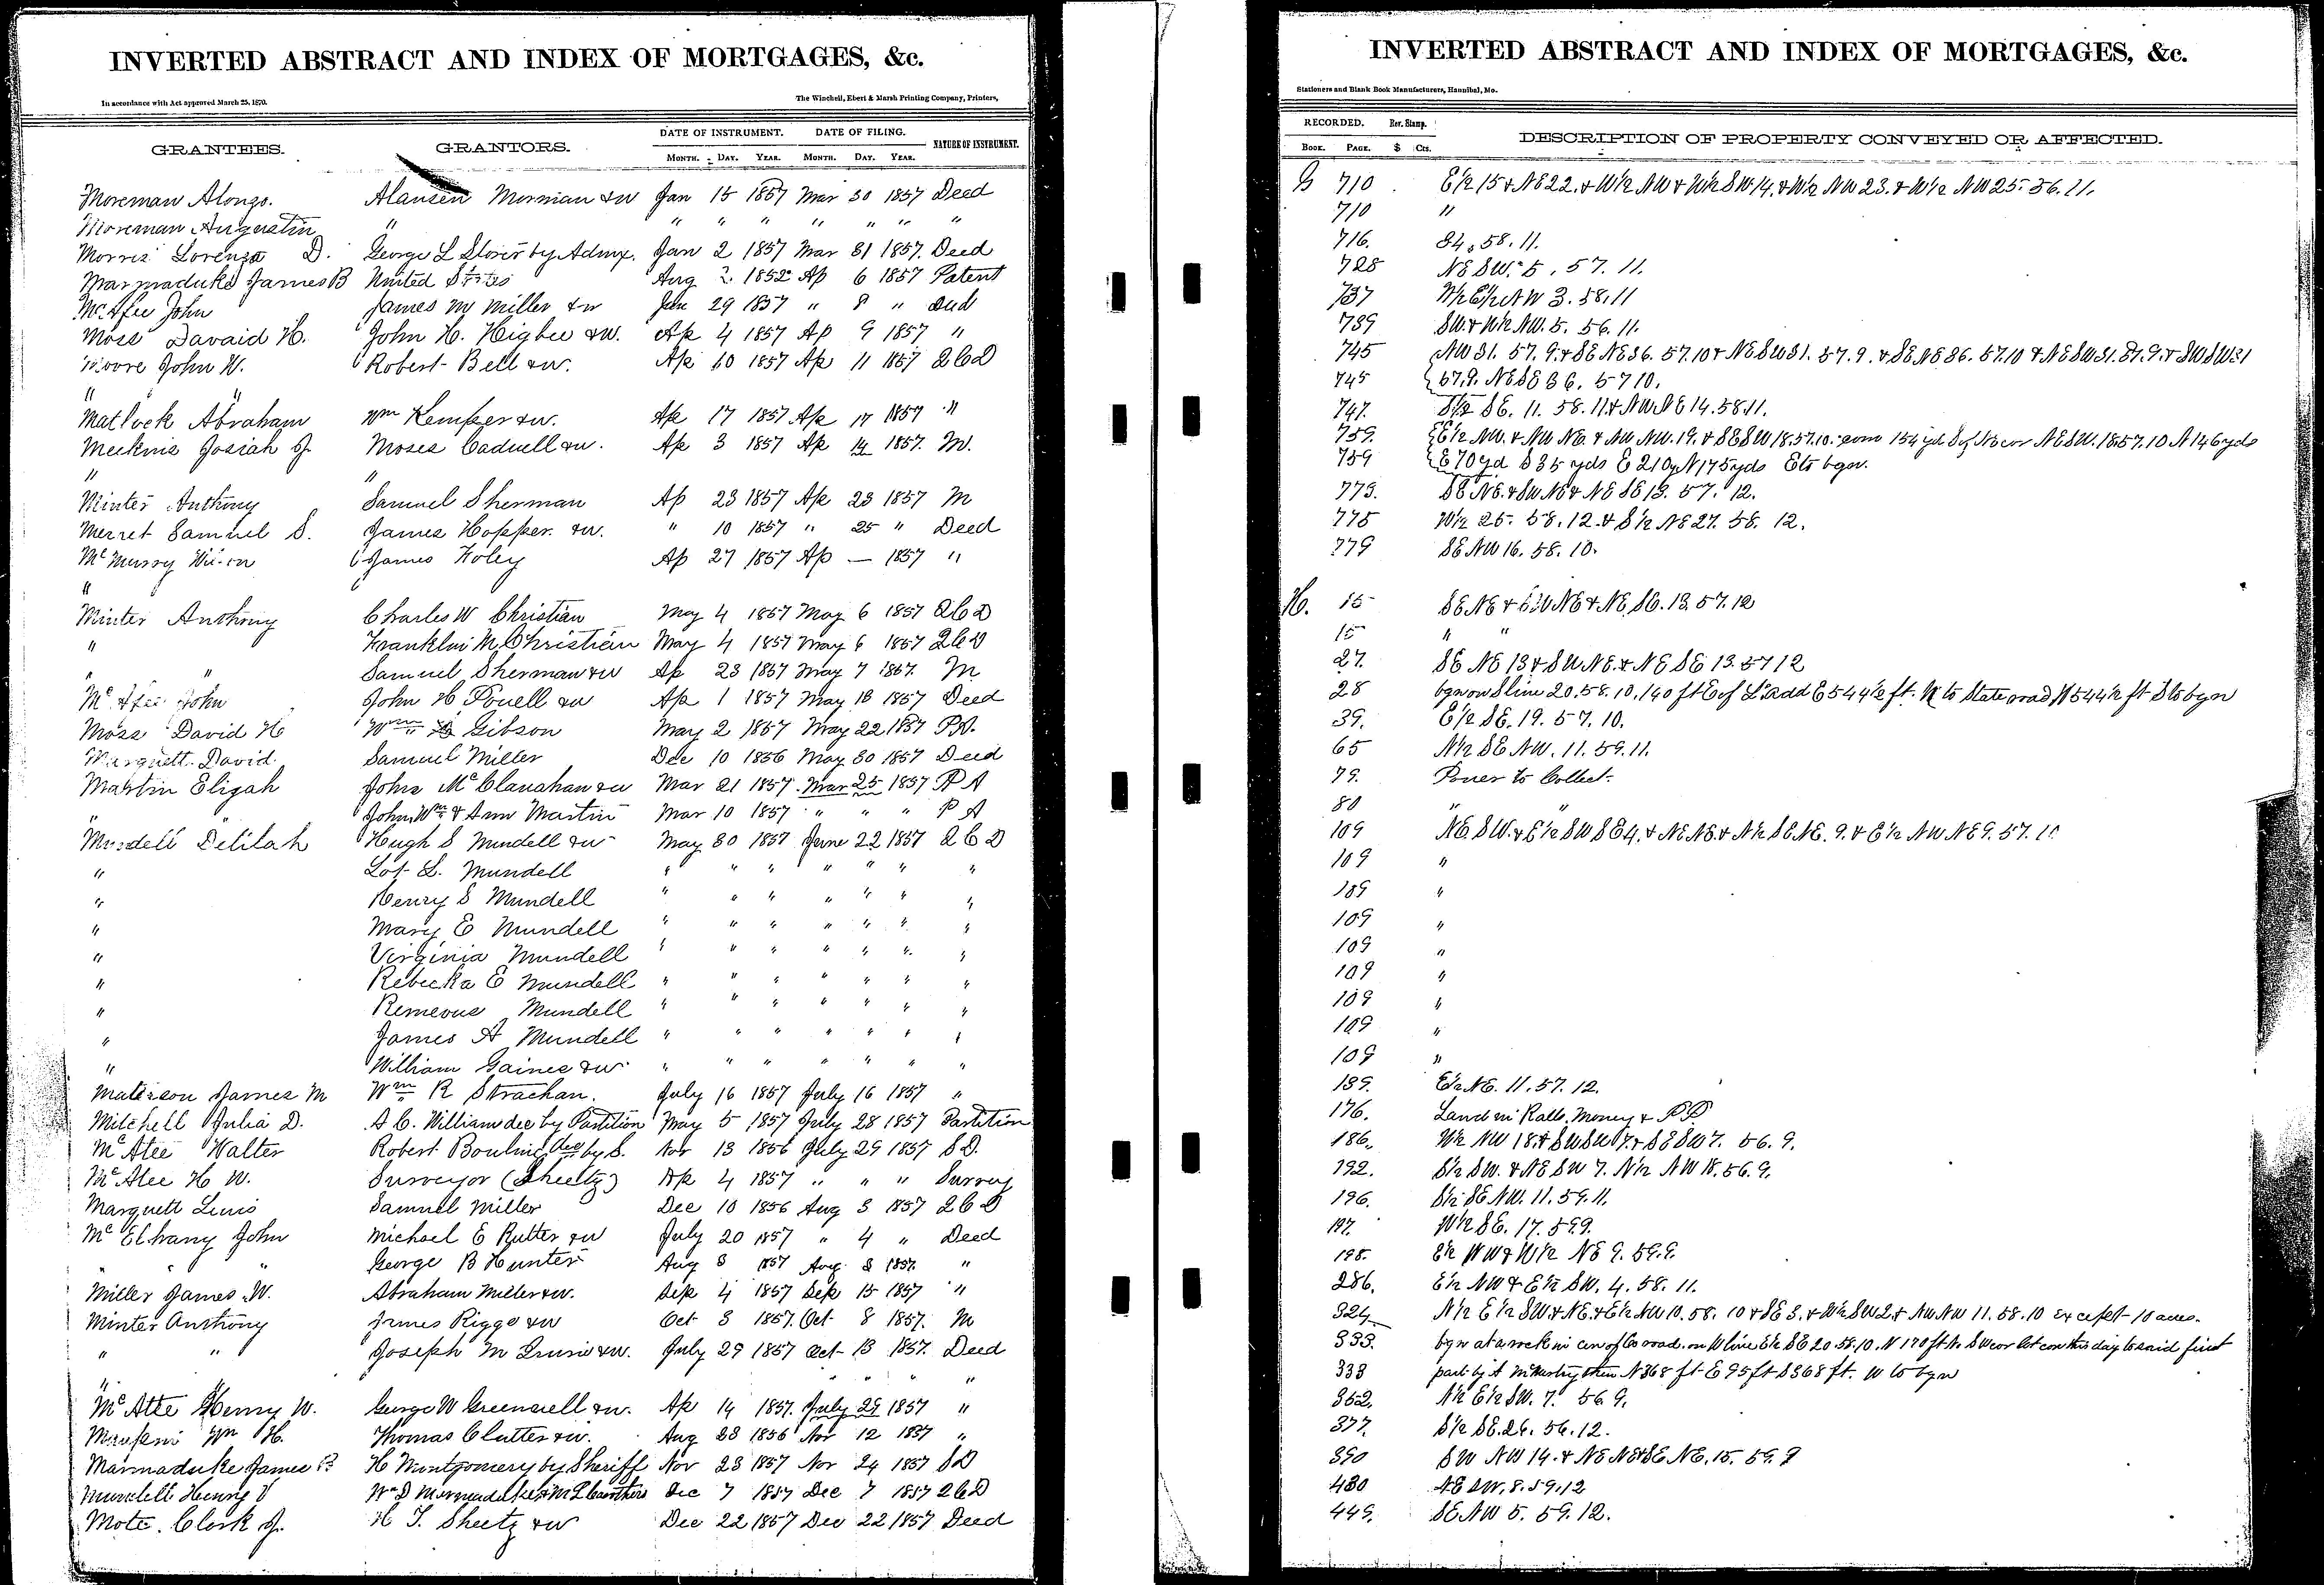 INVERTED ABSTRACT AND INDEX OF MORTGAGES, &c.
In accordance with Act approved March 25, 1870.
The Winchell, Ebert & Marsh Printing Company, Printers,
GRANTEES. GRANTORS. DATE OF INSTRUMENT. DATE OF FILING. NATURE OF INSTRUMENT.
MONTH. DAY. YEAR. MONTH. DAY. YEAR.
Moreman Alonzo. Alansen Morman &w Jan 15 1857 Mar 30 1857 Deed
Moreman Augustin " " " " " " " "
Morris Lorenza D. George L Stover by Admx. Jan 2 1857 Mar 31 1857. Deed
Marmaduke James B United States Aug 2 1852 Ap 6 1857 Patent
McAfee John James M Miller &w Jan 29 1857 " 8 " Deed
Moss Davaid H. John H. Higbee &w. Ap 4 1857 Ap 9 1857 "
Moore John W. Robert Bell &w. Ap 10 1857 Ap 11 1857 QCD
"
Matlock Abraham Wm Kemper &w. Ap 17 1857 Ap 17 1857 "
Meeknis Josiah J. Moses Cadwell &w. Ap 3 1857 Ap 14 1857. M.
" "
Minter Anthony Samuel Sherman Ap 23 1857 Ap 23 1857 M
Merret Samuel S. James Hopper. &w. " 10 1857 " 25 " Deed
McMurry James Foley Ap 27 1857 Ap — 1857 "
"
Minter Anthony Charles W Christian May 4 1857 May 6 1857 QCD
" Franklin M. Christian May 4 1857 May 6 1857 QCD
" " Samuel Sherman &w Ap 23 1857 May 7 1857. M
McAfee John John H Powell &w Ap 1 1857 May 18 1857 Deed
Moss David H Wm Gibson May 2 1857 May 22 1857 PA.
Marquett David Samuel Miller Dec 10 1856 May 30 1857 Deed
Martin Eligah John McClanahan &w Mar 21 1857 Mar 25 1857 P A
" John Wm & Ann Martin Mar 10 1857 " " " P A
Mundell Delilah Hugh S Mundell &w May 30 1857 June 22 1857 QCD
" Lot L. Mundell " " " " " " "
" Henry S Mundell " " " " " " "
" Mary E Mundell " " " " " " "
" Virginia Mundell " " " " " " "
" Rebecka E Mundell " " " " " " "
" Remeous Mundell " " " " " " "
" James A Mundell " " " " " " "
" William Gaines &w " " " " " " "
Materson James M Wm R Strachan. July 16 1857 July 16 1857 "
Mitchell Julia D. A C. William dec by Partition May 5 1857 July 28 1857 Partition
McAtee Walter Robert Bouling dec by S. Nov 13 1856 July 29 1857 S D.
McAtee H W. Surveyor (Sheetz) Ap 4 1857 " " " Survey
Marquett Lewis Samuel Miller Dec 10 1856 Aug 3 1857 QCD
McElhany John Michael E Rutter &w July 20 1857 " 4 " Deed
" " George B Hunter Aug 8 1857 Aug 8 1857. "
Miller James W. Abraham Miller &w. Sep 4 1857 Sep 15 1857 "
Minter Anthony James Riggs &w Oct 3 1857. Oct 8 1857. M
" " Joseph M &w. July 29 1857 Oct 13 1857. Deed
" " " " "
McAtee Henry W. George W Greenwell &w. Ap 14 1857. July 29 1857 "
Maupin Wm H. Thomas Clutter &w. Aug 28 1856 Nov 12 1857 "
Marmaduke James B H Montgomery by Sheriff Nov 23 1857 Nov 24 1857 SD
Mundell Henry Wm D Marmaduke & M L Cauthers Dec 7 1857 Dec 7 1857 QCD
Mote. Clark J. H T. Sheetz &w Dec 22 1857 Dec 22 1857 Deed
INVERTED ABSTRACT AND INDEX OF MORTGAGES, &c.
Stationers and Blank Book Manufacturers, Hannibal, Mo.
RECORDED. Rev. Stamp. DESCRIPTION OF PROPERTY CONVEYED OR AFFECTED.
BOOK. PAGE. $ Cts.
G 710 E½ 15 & NE 22. & W½ NW & W½ SW 14. & W½ NW 23. & W½ NW 25. 56. 11.
710 "
716. 34. 58. 11.
728 NE SW. 5. 57. 11.
737 W½ E½ NW 3. 58. 11
739 SW. & W½ NW. 5. 56. 11.
745 NW 31. 57. 9. & SE NE 36. 57. 10 & NE SW 31. 57. 9. & SE NE 36. 57. 10 & NE SW 31. 57. 9. & SW SW 31
745 57. 9. NE SE 36. 57 10.
747. S½ SE. 11. 58. 11 & NW NE 14. 58. 11.
759. E½ NW. & NW NE. & NW NW. 19. & SE SW 18. 57. 10. com 154 yd S of NE cor NE SW. 18. 57. 10 N 146 yds
759 E 70 yd S 35 yds E 210 y N 175 yds E to bgn.
773. SE NE. & SW NE & NE SE 13. 57. 12.
775 W½ 25. 58. 12. & S½ NE 27. 58. 12.
779 SE NW 16. 58. 10.
H. 15 SE NE & SW NE & NE SE. 13. 57. 12
15 " "
27. SE NE 13 & SW NE. & NE SE 13. 57 12
28 bgn on S line 20. 58. 10. 140 ft E of L's add E 544½ ft. N to State road W 544½ ft S to bgn
39. E½ SE. 19. 57. 10.
65 N½ SE NW. 11. 59. 11.
79. Power to Collect.
80 " "
109 NE. SW. & E½ SW SE 4. & NE NE. & N½ SE NE. 9. & E½ NW NE 9. 57. 11
109 "
109 "
109 "
109 "
109 "
109 "
109 "
109 "
139. E½ NE. 11. 57. 12.
176. Land in Ralls. Money & P P
186. W½ NW 18. & SW SW 7. & SE SW 7. 56. 9.
192. S½ SW. & NE SW 7. N½ NW 18. 56. 9.
196. S½ SE NW. 11. 59. 11.
197. W½ SE. 17. 59 9.
198. E½ NW & W½ NE 9. 59. 9.
286. E½ NW & E½ SW. 4. 58. 11.
324 N½ E½ SW. & NE. & E½ NW 10. 58. 10 & SE 3. & W½ SW 2. & NW NW 11. 58. 10 except 10 acres.
333. bgn at a rock in cen of Co road. on W line E½ SE 20. 58. 10. N 170 ft to SW cor lot con this day to said first
333 part by A then N 368 ft E 95 ft S 368 ft. W to bgn
352. N½ E½ SW. 7. 56 9.
377. S½ SE. 26. 56. 12.
390 SW NW 14. & NE NE & SE NE. 15. 59. 9
430 NE SW. 8. 59. 12
449. SE NW 5. 59. 12.